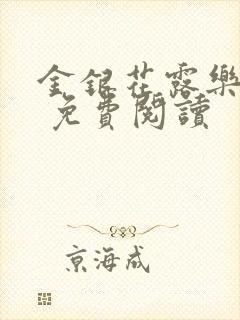 金銀花露樂
免費閱讀
京海成